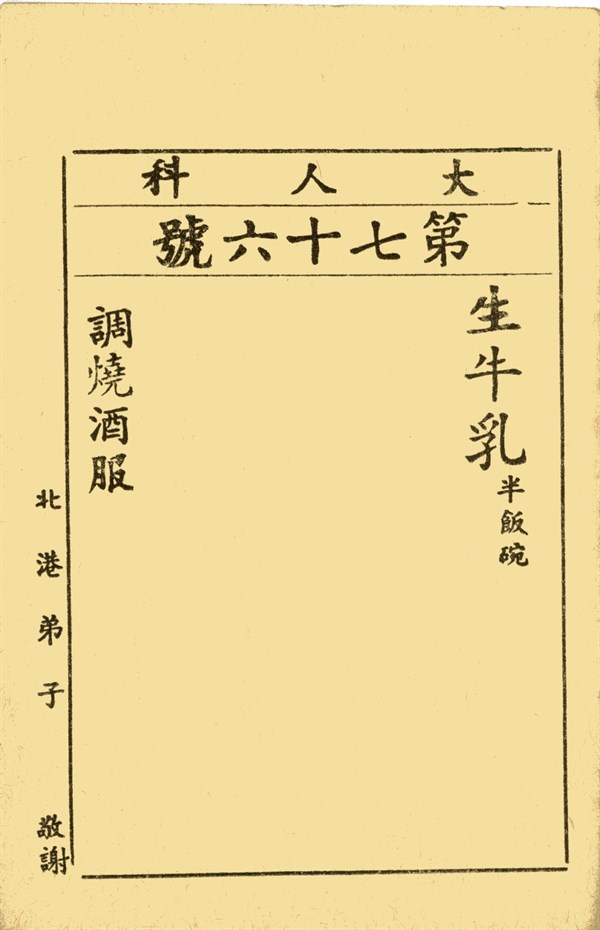 大人科
第七十六號
生牛乳半飯碗
調燒酒服
北港弟子 敬謝